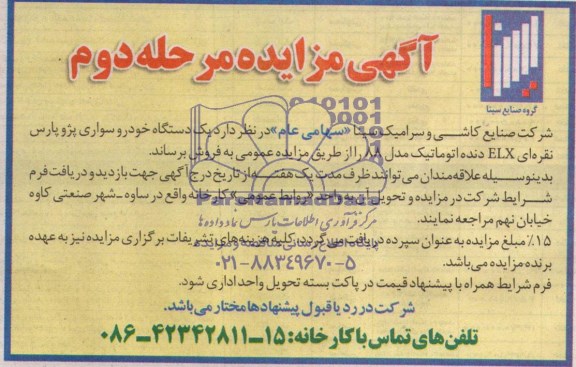 آگهی مزایده مرحله دوم
گروه صنایع سینا
شرکت صنایع کاشی و سرامیک سینا «سهامی عام» در نظر دارد یک دستگاه خودرو سواری پژو پارس
نقره‌ای ELX دنده اتوماتیک مدل ۸۸ را از طریق مزایده عمومی به فروش برساند.
بدینوسیله علاقه‌مندان می‌توانند ظرف مدت یک هفته از تاریخ درج آگهی جهت بازدید و دریافت فرم
شرایط شرکت در مزایده و تحویل آن به واحد «روابط عمومی» کارخانه واقع در ساوه ـ شهر صنعتی کاوه
خیابان نهم مراجعه نمایند.
۱۵٪ مبلغ مزایده به عنوان سپرده دریافت می‌گردد. کلیه هزینه‌های تشریفات برگزاری مزایده نیز به عهده
برنده مزایده می‌باشد.
فرم شرایط همراه با پیشنهاد قیمت در پاکت بسته تحویل واحد اداری شود.
شرکت در رد یا قبول پیشنهادها مختار می‌باشد.
تلفن‌های تماس با کارخانه: ۱۵ــ۴۲۳۴۲۸۱۱ــ۰۸۶
مرکز فرآوری اطلاعات پارس نماد داده ها
۰۲۱-۸۸۳۴۹۶۷۰-۵